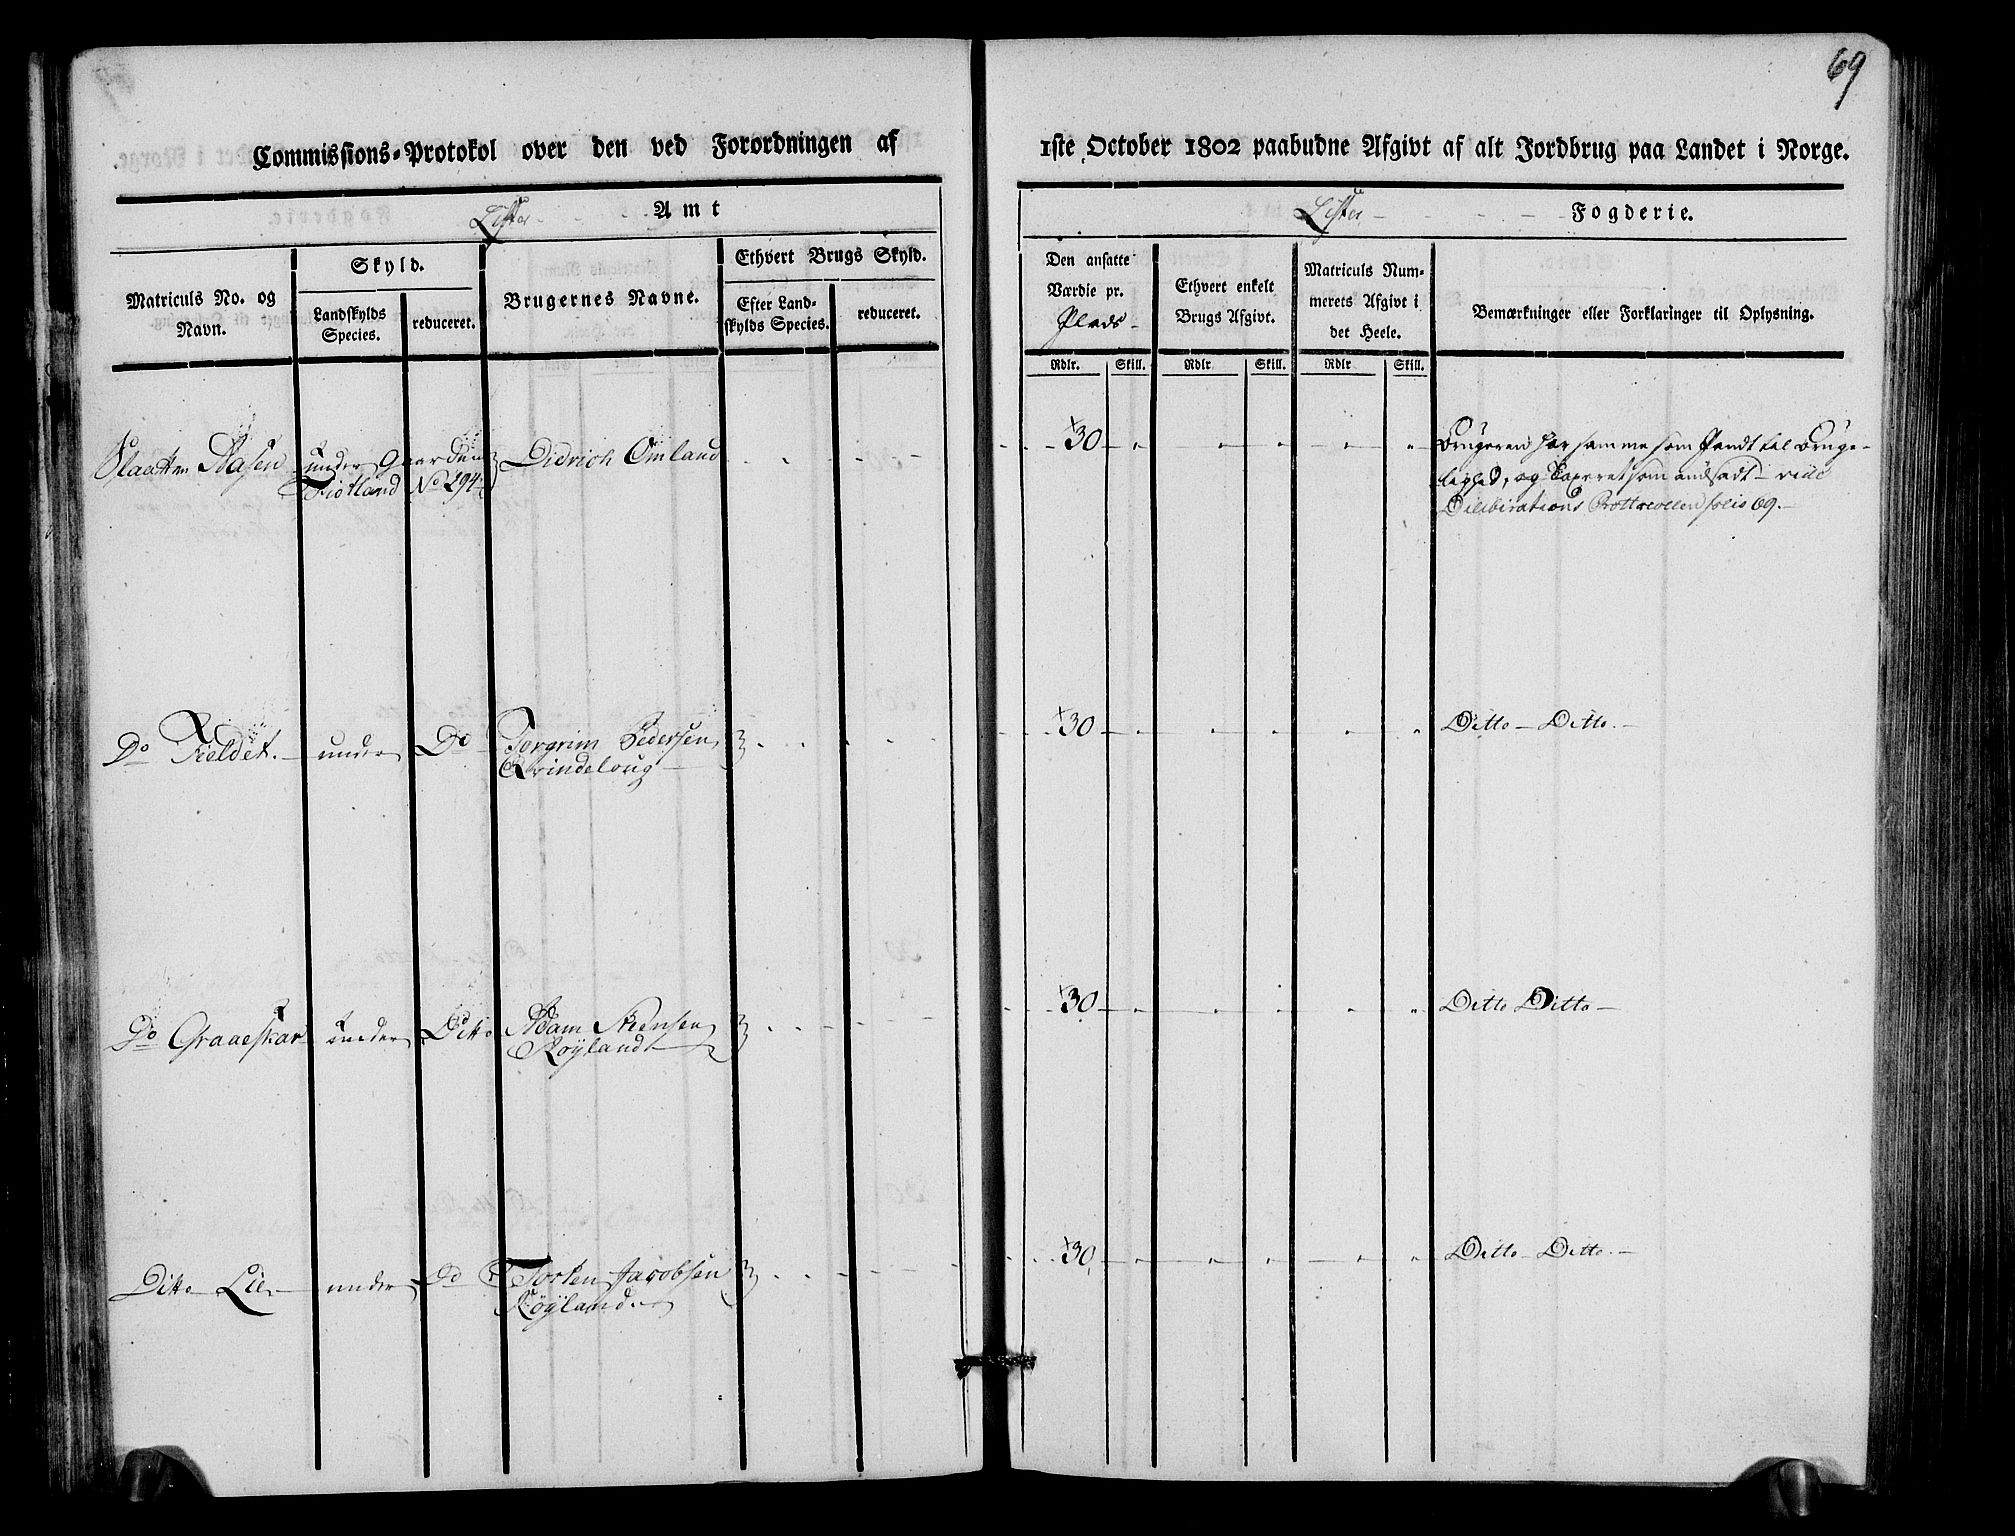 69
Commissions-Protokol over den ved Forordningen af
1ste October 1802 paabudne Afgivt af alt Jordbrug paa Landet i Norge.
Lister Amt
Lister Fogderie.
Matriculs No. og
Navn.
Skyld.
Landskylds
Species.
reduceret.
Brugernes Navne.
Ethvert Brugs Skyld.
Efter Land-
skylds Species.
reduceret.
Den ansatte
Værdie pr.
Plads
Ethvert enkelt
Brugs Afgivt.
Matriculs Num-
merets Afgivt i
det Heele.
Bemærkninger eller Forklaringer til Oplysning.
Rdlr. Skill. Rdlr Skill. Rdlr Skill.
Aasen under Gaarden Didrich Omland
Fiotland No 294
30
Brugeren har samme som Pandt til Bruge-
lighed, og Taxeret som andsadt vide
Deliberations Prottocollen folio 69.
Do Fieldet. under Do Torgrim Pedersen
Qvindeloug
30
Ditto Ditto.
Do Graaeskar under Ditto Adam Steensen
Røyland
30
Ditto Ditto
Ditto Lie under Do Torken Jacobsen
Røyland.
30
Ditto Ditto.